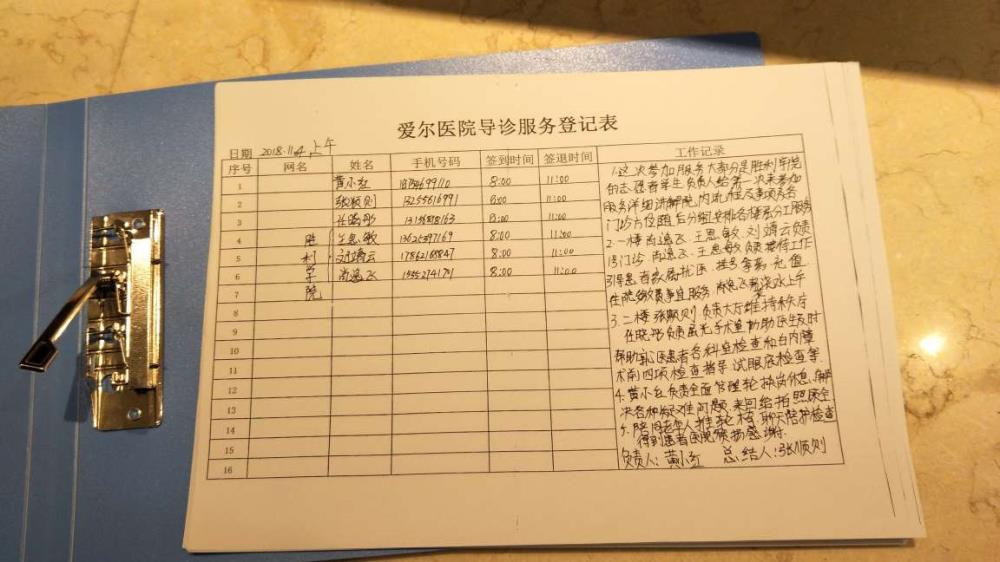 爱尔医院导诊服务登记表
日期 2018.11.4 上午
序号 网名 姓名 手机号码 签到时间 签退时间 工作记录
1 黄小红 8:00 11:00
2 张顺则 13255616991 8:00 11:00
3 任晓彤 8:00 11:00
4 王思敏 13625397169 8:00 11:00
5 刘靖云 8:00 11:00
6 尚逸飞 8:00 11:00
7
8
9
10
11
12
13
14
15
16
胜利学院
1.这次参加服务大部分是胜利学院
的志愿者学生负责人给第一次来参加
服务详细讲解院内流程及事项及各
门诊方位图后分组安排各楼层分工服务
2.一楼尚逸飞、王思敏、刘靖云负责
门诊 尚逸飞、王思敏负责接待工作
引导患者家属扶医、挂号拿药、充值
住院缴费事宜服务
3.二楼张顺则负责大厅维持秩序
任晓彤负责屈光手术室协助医生及时
帮助就医患者各科室检查和白内障
术前四项检查指导、试眼底检查等.
4.黄小红负责全面管理轮换岗休息、解
决各种疑难问题、来回给拍照原
5.陪同老年人推轮椅、聊天陪护检查
得到患者医院赞扬感谢.
负责人:黄小红 总结人:张顺则